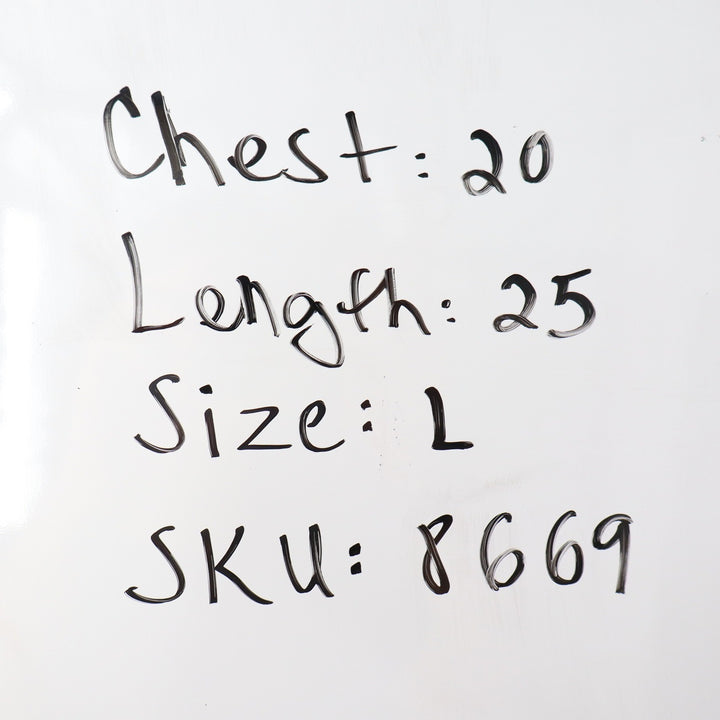 Chest: 20
Length: 25
Size: L
SKU: 8669